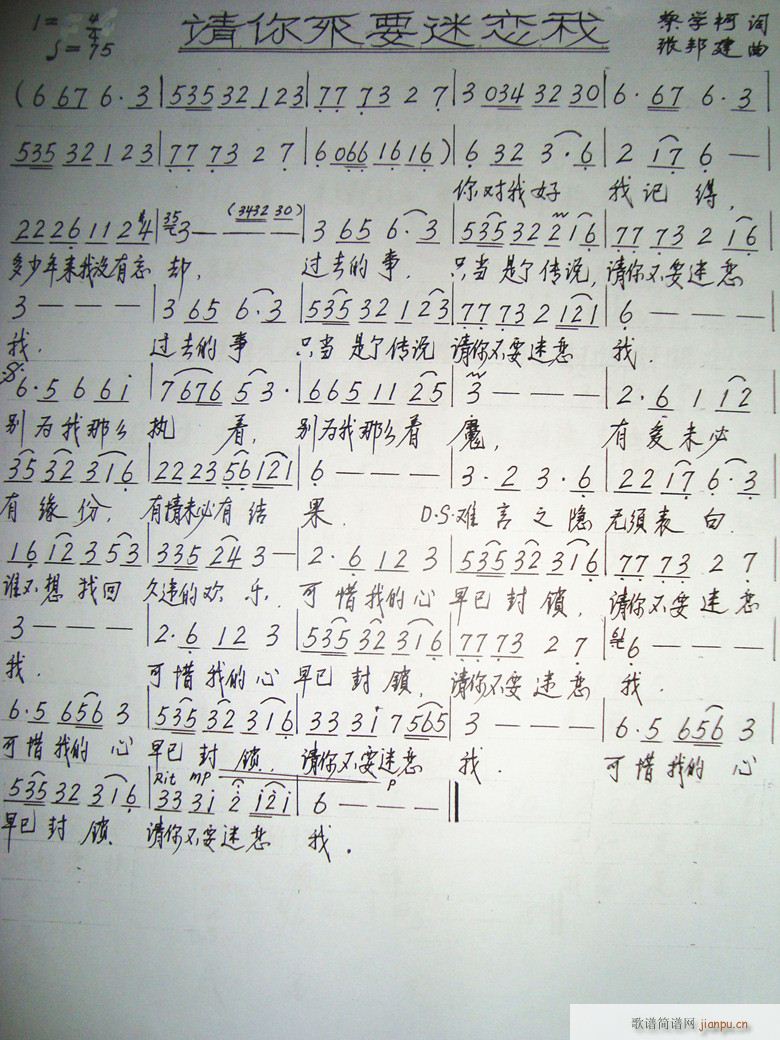 1= 4/4
♩=75
請你不要迷恋我
蔡学柯 词
张邦建 曲
(6 67 6·3 | 535 32 123 | 77 73 2 7 | 3 034 32 30 | 6·67 6·3
535 32 123 | 77 73 2 7 | 6 066 16 16) | 6 32 3·6 | 2 17 6 —
你对我好 我记得,
2226 112 4 | 3 — — (3432 30) | 3 65 6·3 | 535 32 216 | 77 73 2 16
多少年来我没有忘却, 过去的事. 只当是了传说, 请你不要迷恋
3 — — — | 3 65 6·3 | 535 32 123 | 77 73 2 121 | 6 — — —
我. 过去的事 只当是了传说 请你不要迷恋 我.
6·5 6 61 | 7676 5 3· | 665 11 25 | 3 — — — | 2·6 1 12
别为我那么执着, 别为我那么着魔, 有爱未必
35 32 316 | 22 23 56 121 | 6 — — — | 3·2 3·6 | 22 17 6·3
有缘份, 有情未必有结果. D.S.难言之隐 无须表白.
16 12 3 53 | 335 24 3 — | 2·6 12 3 | 535 32 316 | 77 73 2 7
谁不想找回 久违的欢乐. 可惜我的心 早已封锁, 请你不要迷恋
3 — — — | 2·6 12 3 | 535 32 316 | 77 73 2 7 | 6 — — —
我. 可惜我的心 早已封锁, 请你不要迷恋 我.
6·5 656 3 | 535 32 316 | 33 31 7 565 | 3 — — — | 6·5 656 3
可惜我的心 早已封锁, 请你不要迷恋 我. 可惜我的心
Rit mp p
535 32 316 | 33 31 2 121 | 6 — — —
早已封锁 请你不要迷恋 我.
歌谱简谱网 jianpu.cn